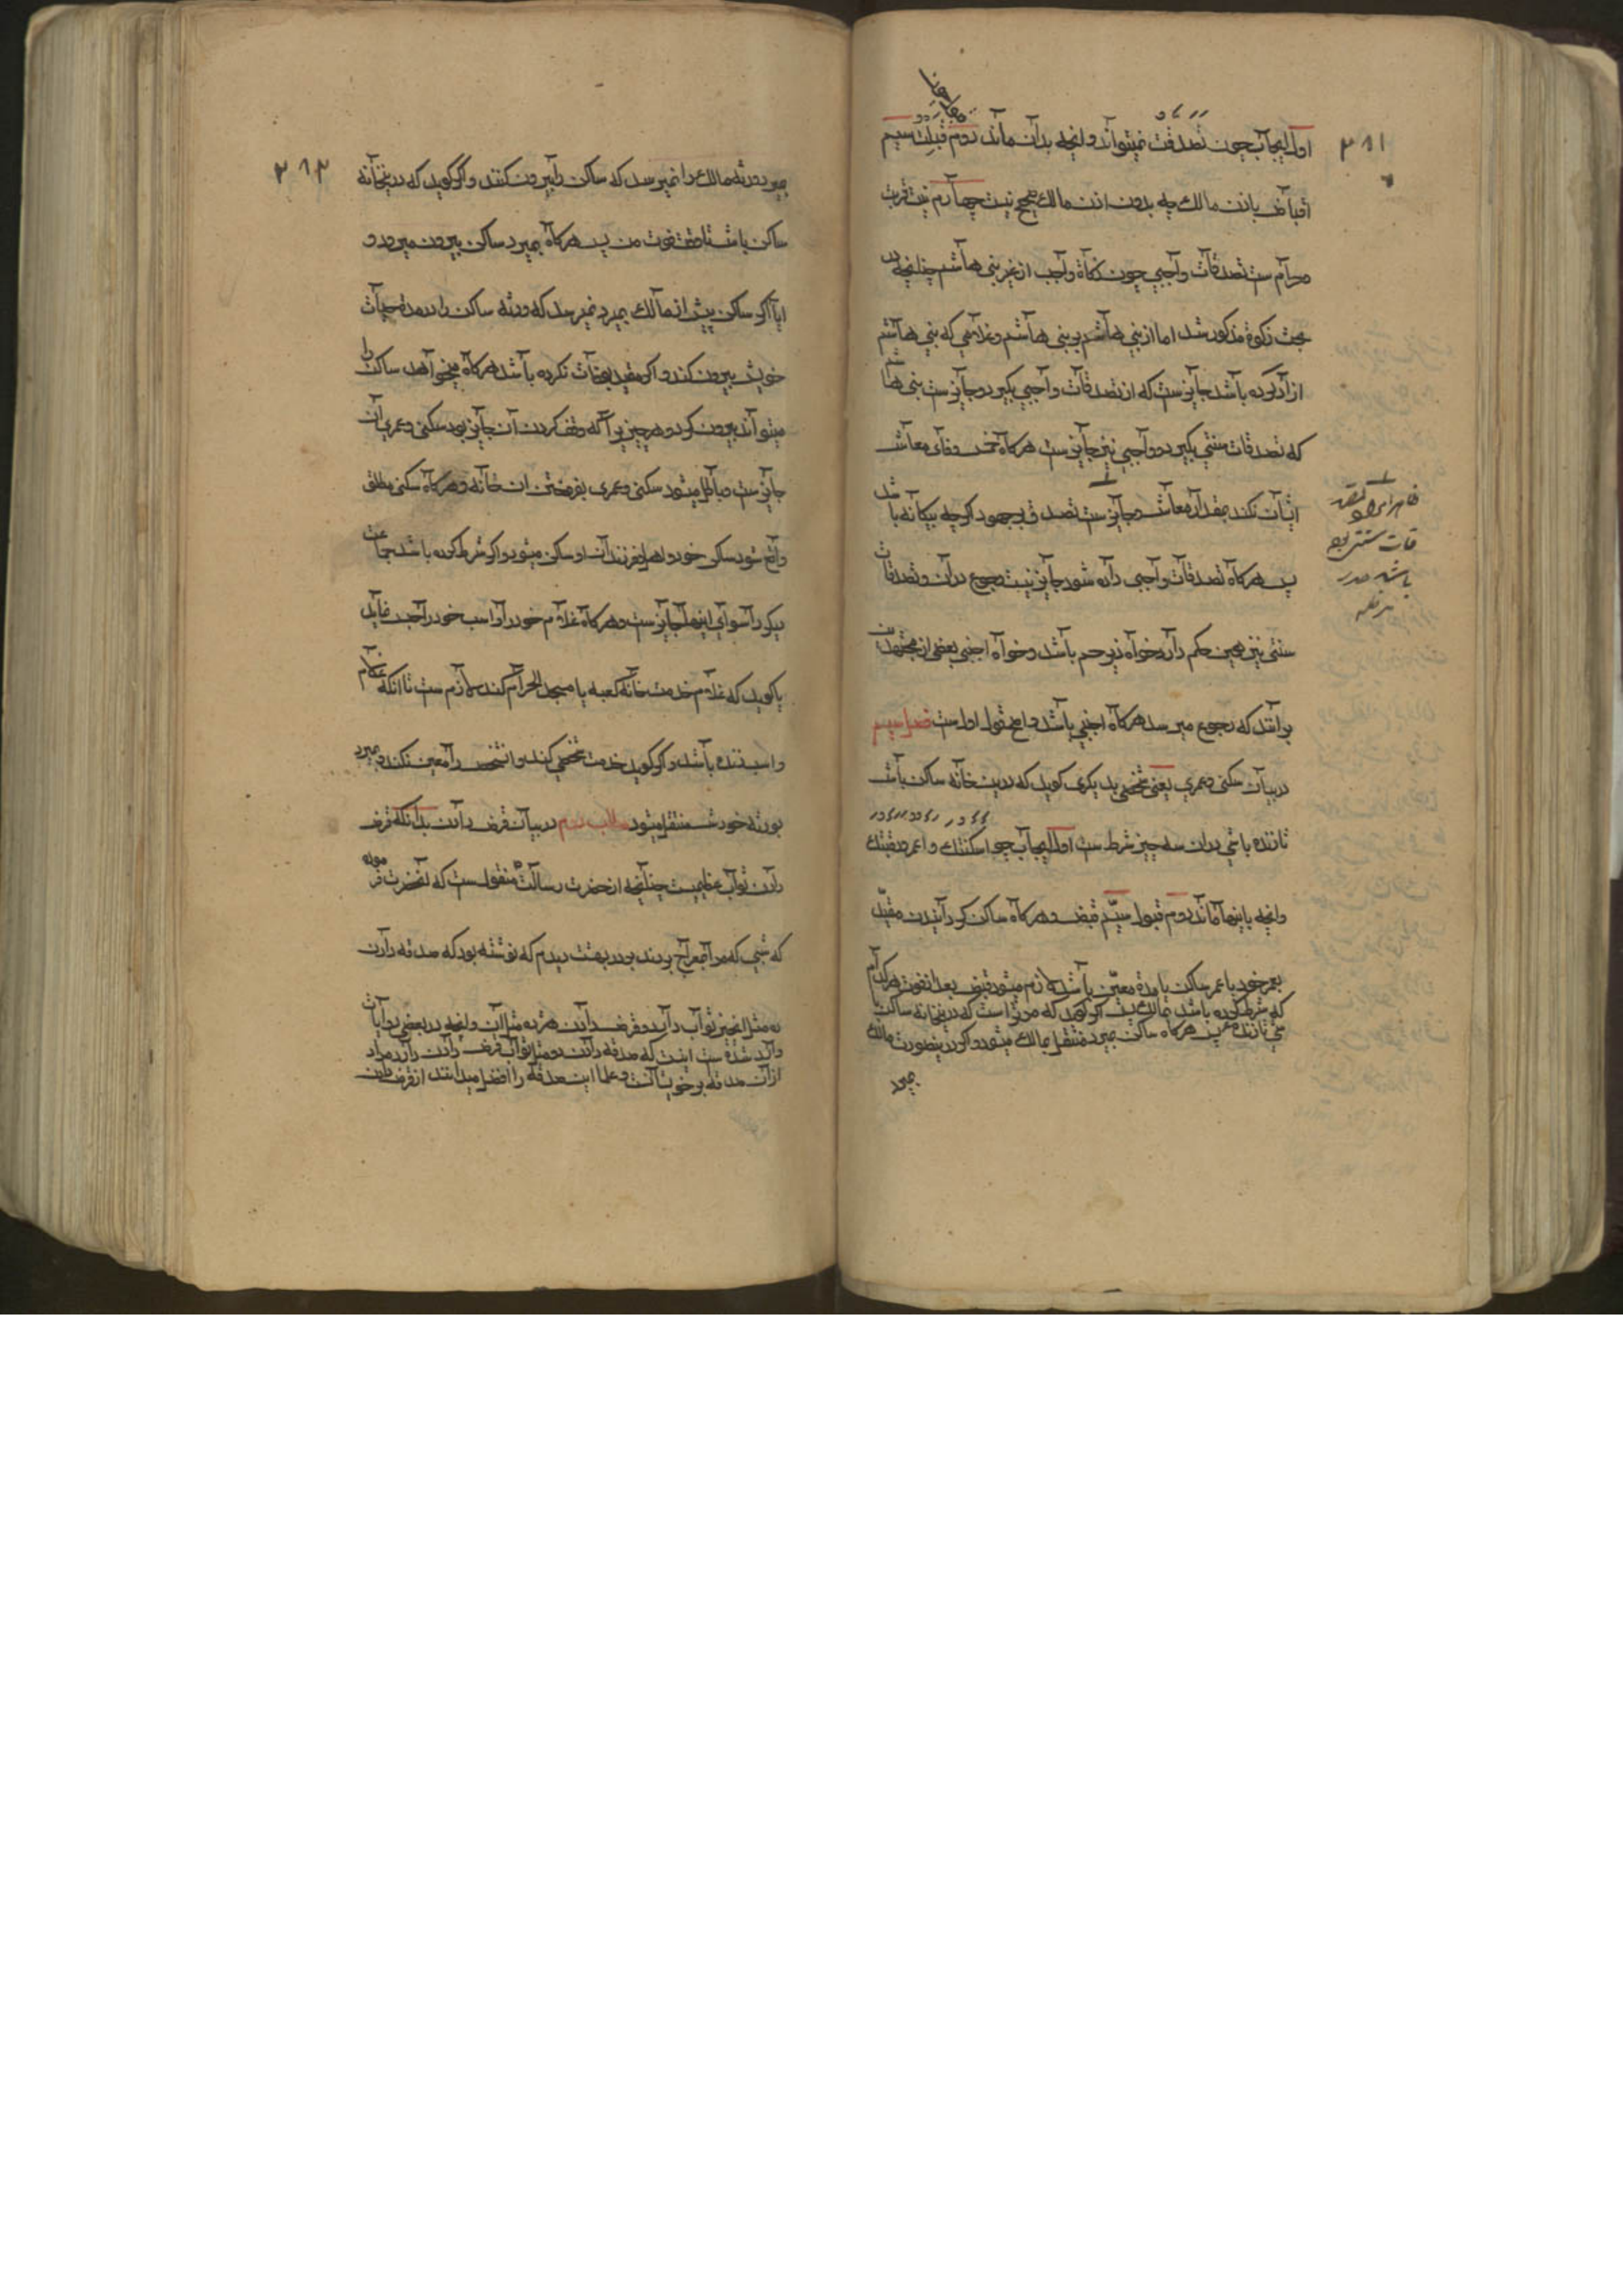 ۳۸۱
اول ایجاب چون تصدقت میتواند و آنچه بدان ماند دوم قبلت سیم
اقباض باذن مالک چه بدون اذن مالک صحیح نیست چهارم نیت قربت
حرام ست تصدقات واجبی چون زکاة واجب از غیر بنی هاشم چنانچه در
بحث زکوة مذکور شد اما از بنی هاشم بر بنی هاشم و غلامی که بنی هاشم
ازاد کرده باشد جایز ست که از تصدقات واجبی بگیرد و جایز ست بنی هاشم
که تصدقات سنتی بگیرد و واجبی نیز جایز ست هرکاه خمس وفای معاش
ایشان نکند بمقدار معاش و جایز ست تصدق بر جهود اگرچه بیکانه باشد
پس هرکاه تصدقات واجبی داده شود جایز نیست رجوع دران و تصدقات
سنتی نیز همین حکم دارد خواه ذی رحم باشد و خواه اجنبی بعضی از مجتهدین
برآنند که رجوع میرسد هرکاه اجنبی باشد و اصح قول اول ست فصل سیم
در بیان سکنی و عمری یعنی شخصی بدیکری کوید که درین خانه ساکن باش
تا زنده باشی دران سه چیز شرط ست اول ایجاب چو اسکنتک و اعمرتک
وانچه باینها ماند دوم قبول سیّم قبض و هرکاه ساکن کردانیدن مقیّد
بعمر خود یا عمر ساکن یا مدة معیّن باشد لازم میشود قبض بعد از فوت هرکدام
که شرط کرده باشد بمالک پس اگر کوید که مر تراست که درینخانه ساکن
شی تا زنده پس هرکاه ساکن بمیرد منتقل بمالک میشود و اگر درینصورت مالک
بمیرد
۳۸۲
بمیرد ورثه مالک را نمیرسد که ساکن را بیرون کنند و اگر کوید که درینخانه
ساکن باش تا وقت فوت من پس هرکاه بمیرد ساکن بیرون میرود و
ایا اگر ساکن پیش از مالک بمیرد نمیرسد که ورثه ساکن را در مدة حیات
خویش بیرون کند و اگر مقید بحیات نکرده باشد هرکاه میخواهد ساکن را
میتواند بیرون کرد و هر چیز را که وقف کردن آن جایز بود سکنی و عمری آن
جایز ست و باطل میشود سکنی و عمری بفروختن ان خانه و هرکاه سکنی مطلق
واقع شود ساکن خود و اهل و فرزندان او ساکن میشود و اگر شرط کرده باشد جماعت
دیکر را سوای اینها جایز ست و هرکاه غلام خود را و اسب خود را حبس نماید
یا کوید که غلام خدمت خانه کعبه یا مسجد الحرام کند لازم ست تا انکه غلام
واسب زنده باشد و اگر کوید خدمت شخصی کند و انشخص را معین نکند و بمیرد
بورثه خودش منتقل میشود مطلب دوم در بیان قرض دادن بدانکه قرض
دادن ثواب عظیمست چنانچه از حضرت رسالت منقول ست که آنحضرت فرموده
که شبی که مرا بمعراج بردند بر در بهشت دیدم که نوشته بود که صدقه دادن
ده مثل انچیز ثواب دارد و قرض دادن هژده مثل آن وانچه در بعضی روایات
وارد شده ست اینست که صدقه دادن دو مثل ثواب قرض دادن دارد مراد
ازان صدقه بر خویشانست و علما این صدقه را افضل میدانند از قرض دادن